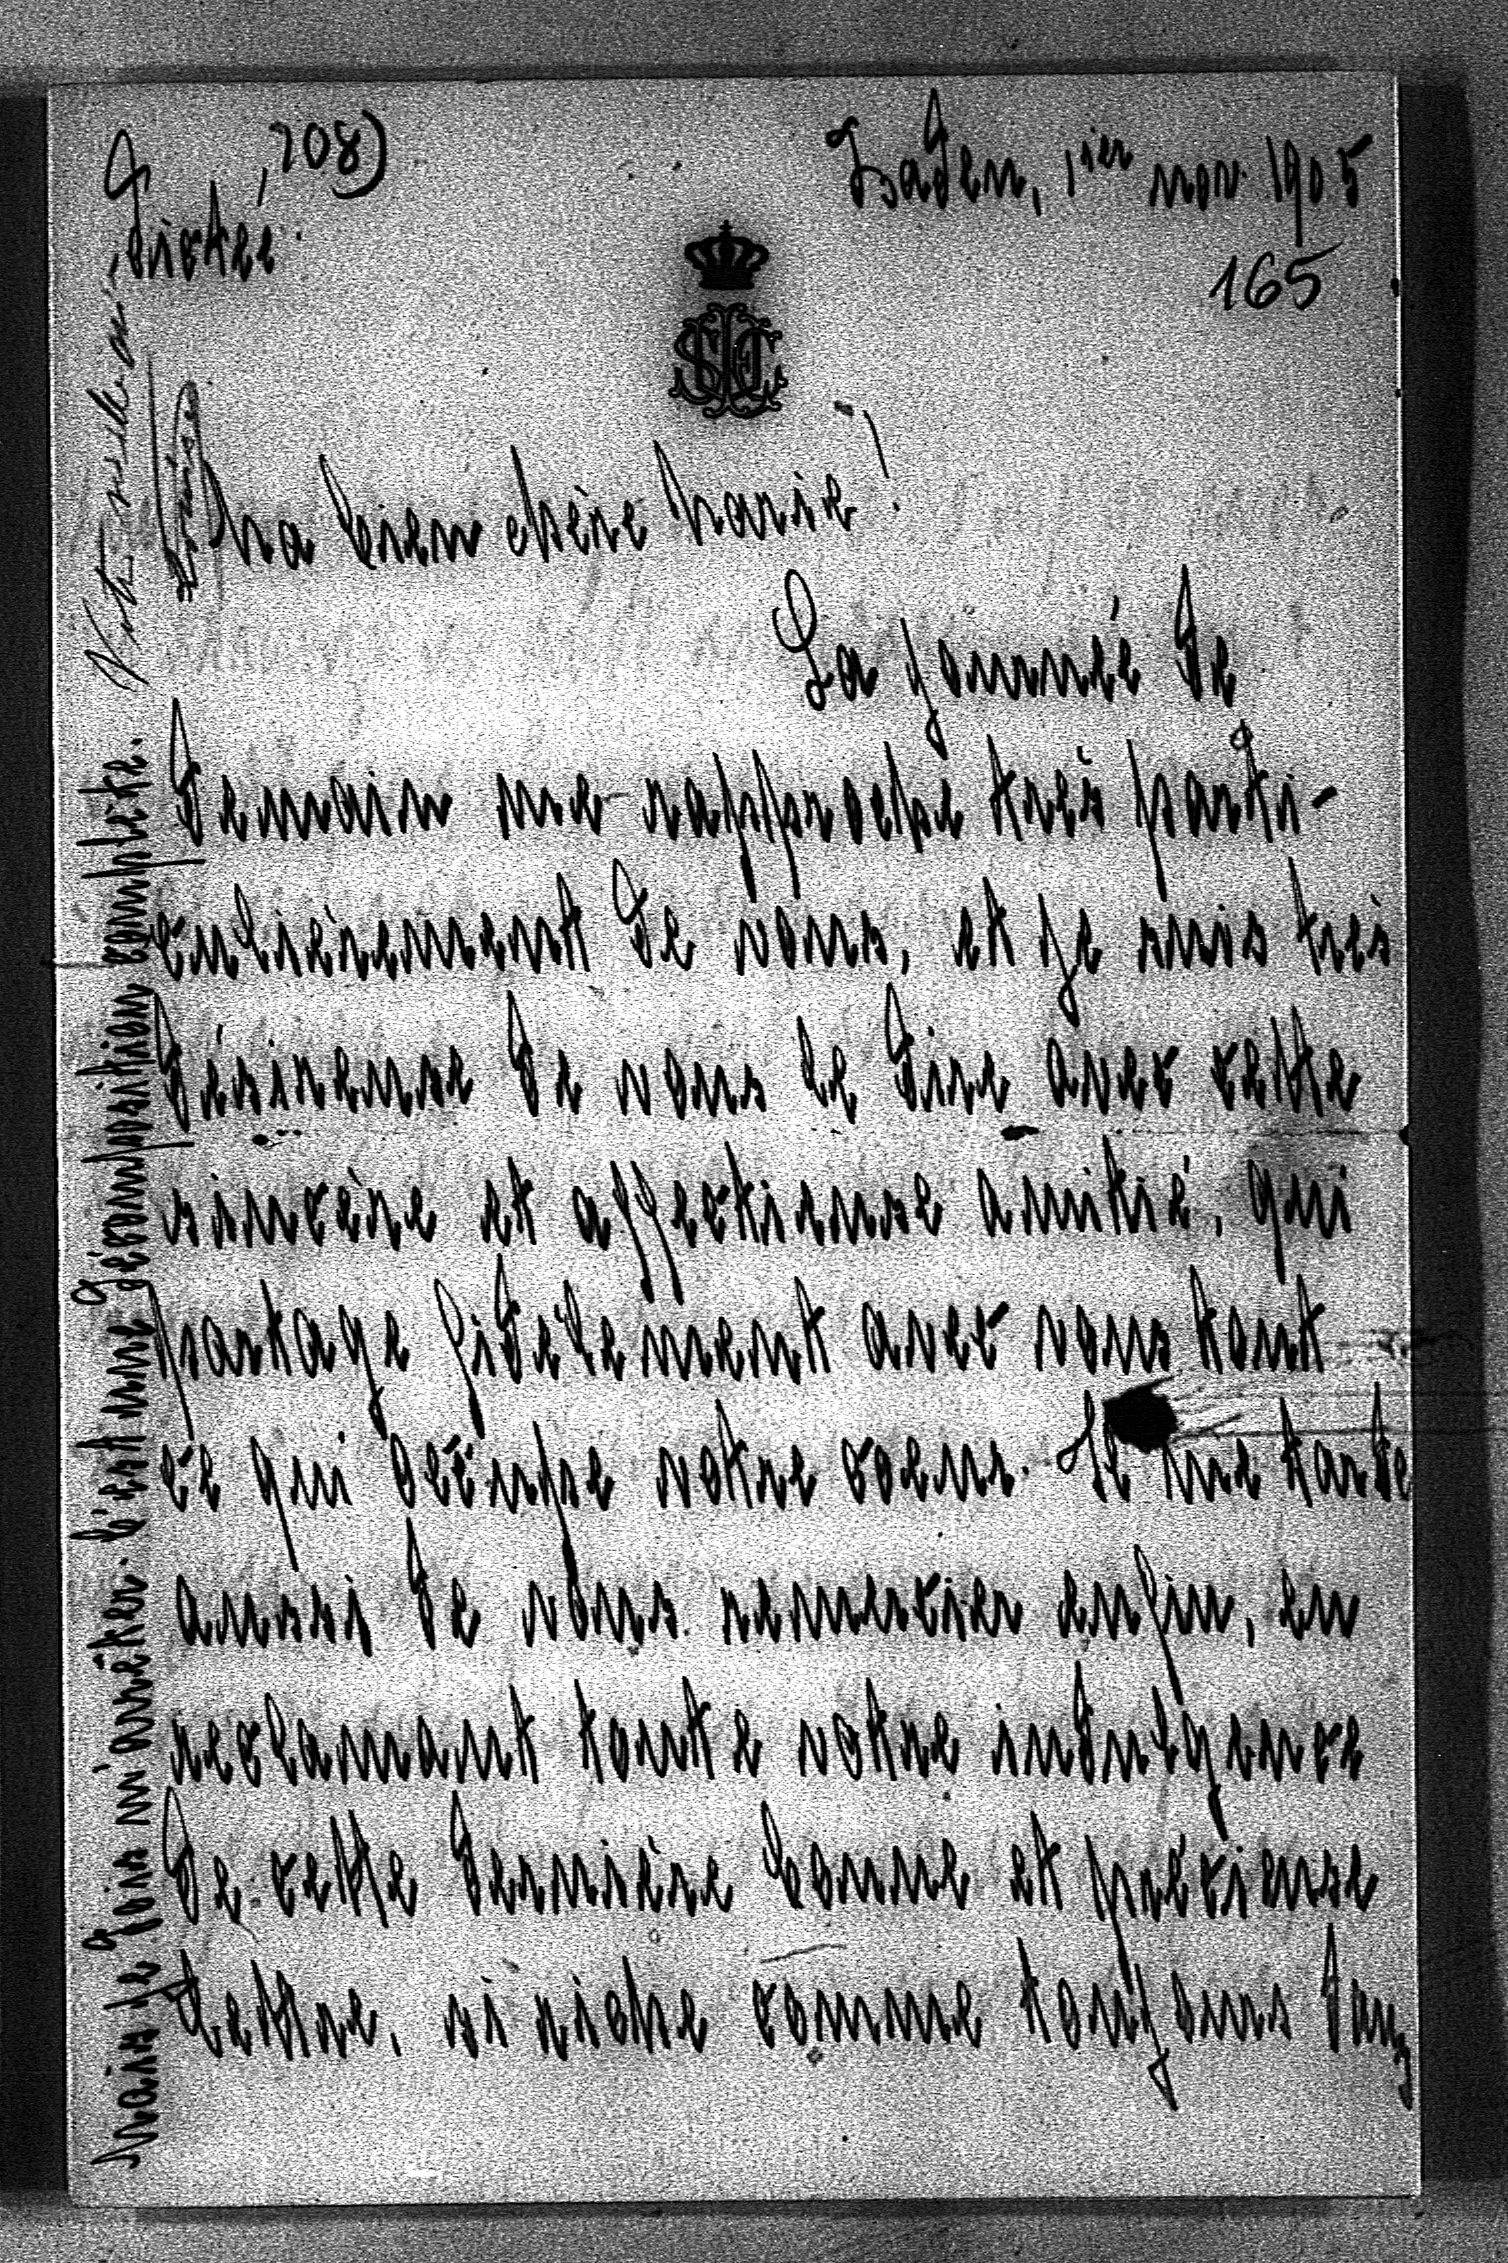 208)
Baden, 1ier nov. 1905
Dictée.
165
Ma bien chère Marie!
La journée de
demain me rapproche très parti-
culièrement de vous, et je suis très
désireuse de vous le dire avec cette
sincère et affectieuse amitié, qui
partage fidèlement avec vous tout
ce qui occupe votre coeur. Il me tarde
aussi de vous remercier enfin, en
reclamant toute votre indulgence
de cette dernière bonne et précieuse
lettre, si riche comme toujours dans
Mais je dois m'arrêter. C'est une décomposition complète.
Votre vieille amie
Louise